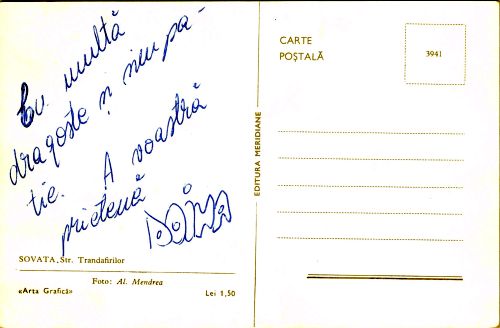 Cu multă
dragoste și simpa-
tie. A voastră
prietenă
DOINA
SOVATA, Str. Trandafirilor
Foto: Al. Mendrea
«Arta Grafică»
Lei 1,50
EDITURA MERIDIANE
CARTE
POȘTALĂ
3941